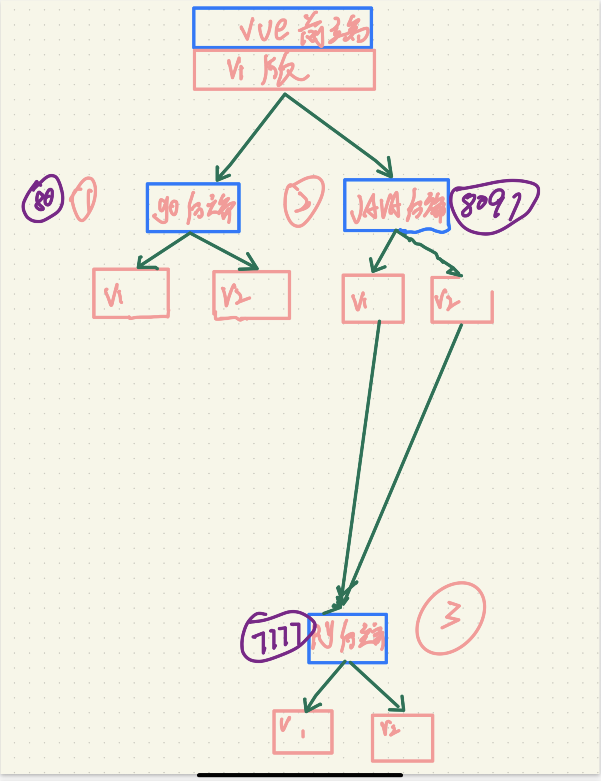 vue前端
V1版
80
1
go后端
2
JAVA后端
8091
V1
V2
V1
V2
7777
PY后端
3
V1
V2